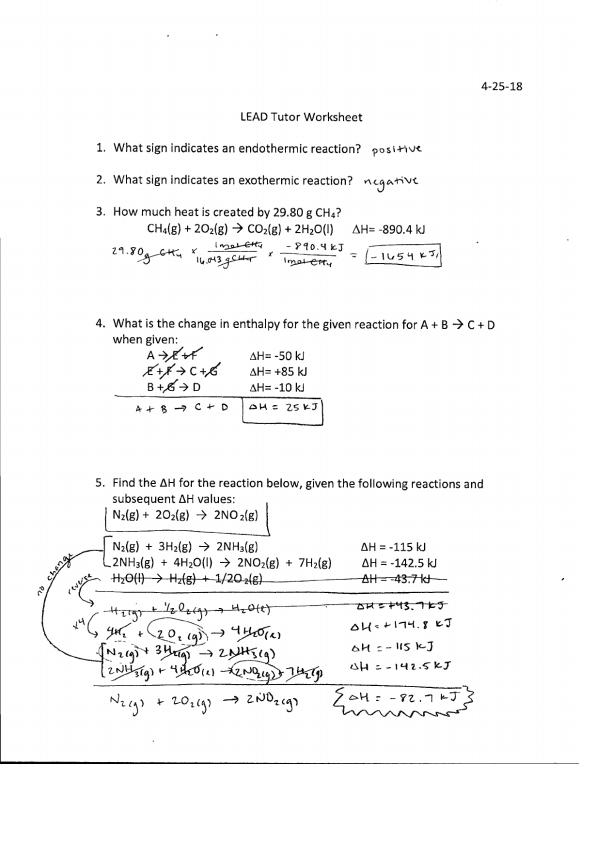 4-25-18
LEAD Tutor Worksheet
1. What sign indicates an endothermic reaction? positive
2. What sign indicates an exothermic reaction? negative
3. How much heat is created by 29.80 g CH₄?
CH₄(g) + 2O₂(g) → CO₂(g) + 2H₂O(l) ΔH= -890.4 kJ
29.80g CH₄ × 1 mol CH₄ / 16.043 g CH₄ × -890.4 kJ / 1 mol CH₄ = -1654 kJ
4. What is the change in enthalpy for the given reaction for A + B → C + D
when given:
A → E + F ΔH= -50 kJ
E + F → C + G ΔH= +85 kJ
B + G → D ΔH= -10 kJ
A + B → C + D ΔH = 25 kJ
5. Find the ΔH for the reaction below, given the following reactions and
subsequent ΔH values:
N₂(g) + 2O₂(g) → 2NO₂(g)
N₂(g) + 3H₂(g) → 2NH₃(g) ΔH = -115 kJ
2NH₃(g) + 4H₂O(l) → 2NO₂(g) + 7H₂(g) ΔH = -142.5 kJ
H₂O(l) → H₂(g) + 1/2O₂(g) ΔH = -43.7 kJ
no change
reverse
H₂(g) + ½O₂(g) → H₂O(l) ΔH = +43.7 kJ
x4
4H₂ + 2O₂(g) → 4H₂O(l) ΔH = +174.8 kJ
N₂(g) + 3H₂(g) → 2NH₃(g) ΔH = -115 kJ
2NH₃(g) + 4H₂O(l) → 2NO₂(g) + 7H₂(g) ΔH = -142.5 kJ
N₂(g) + 2O₂(g) → 2NO₂(g) ΔH = -82.7 kJ